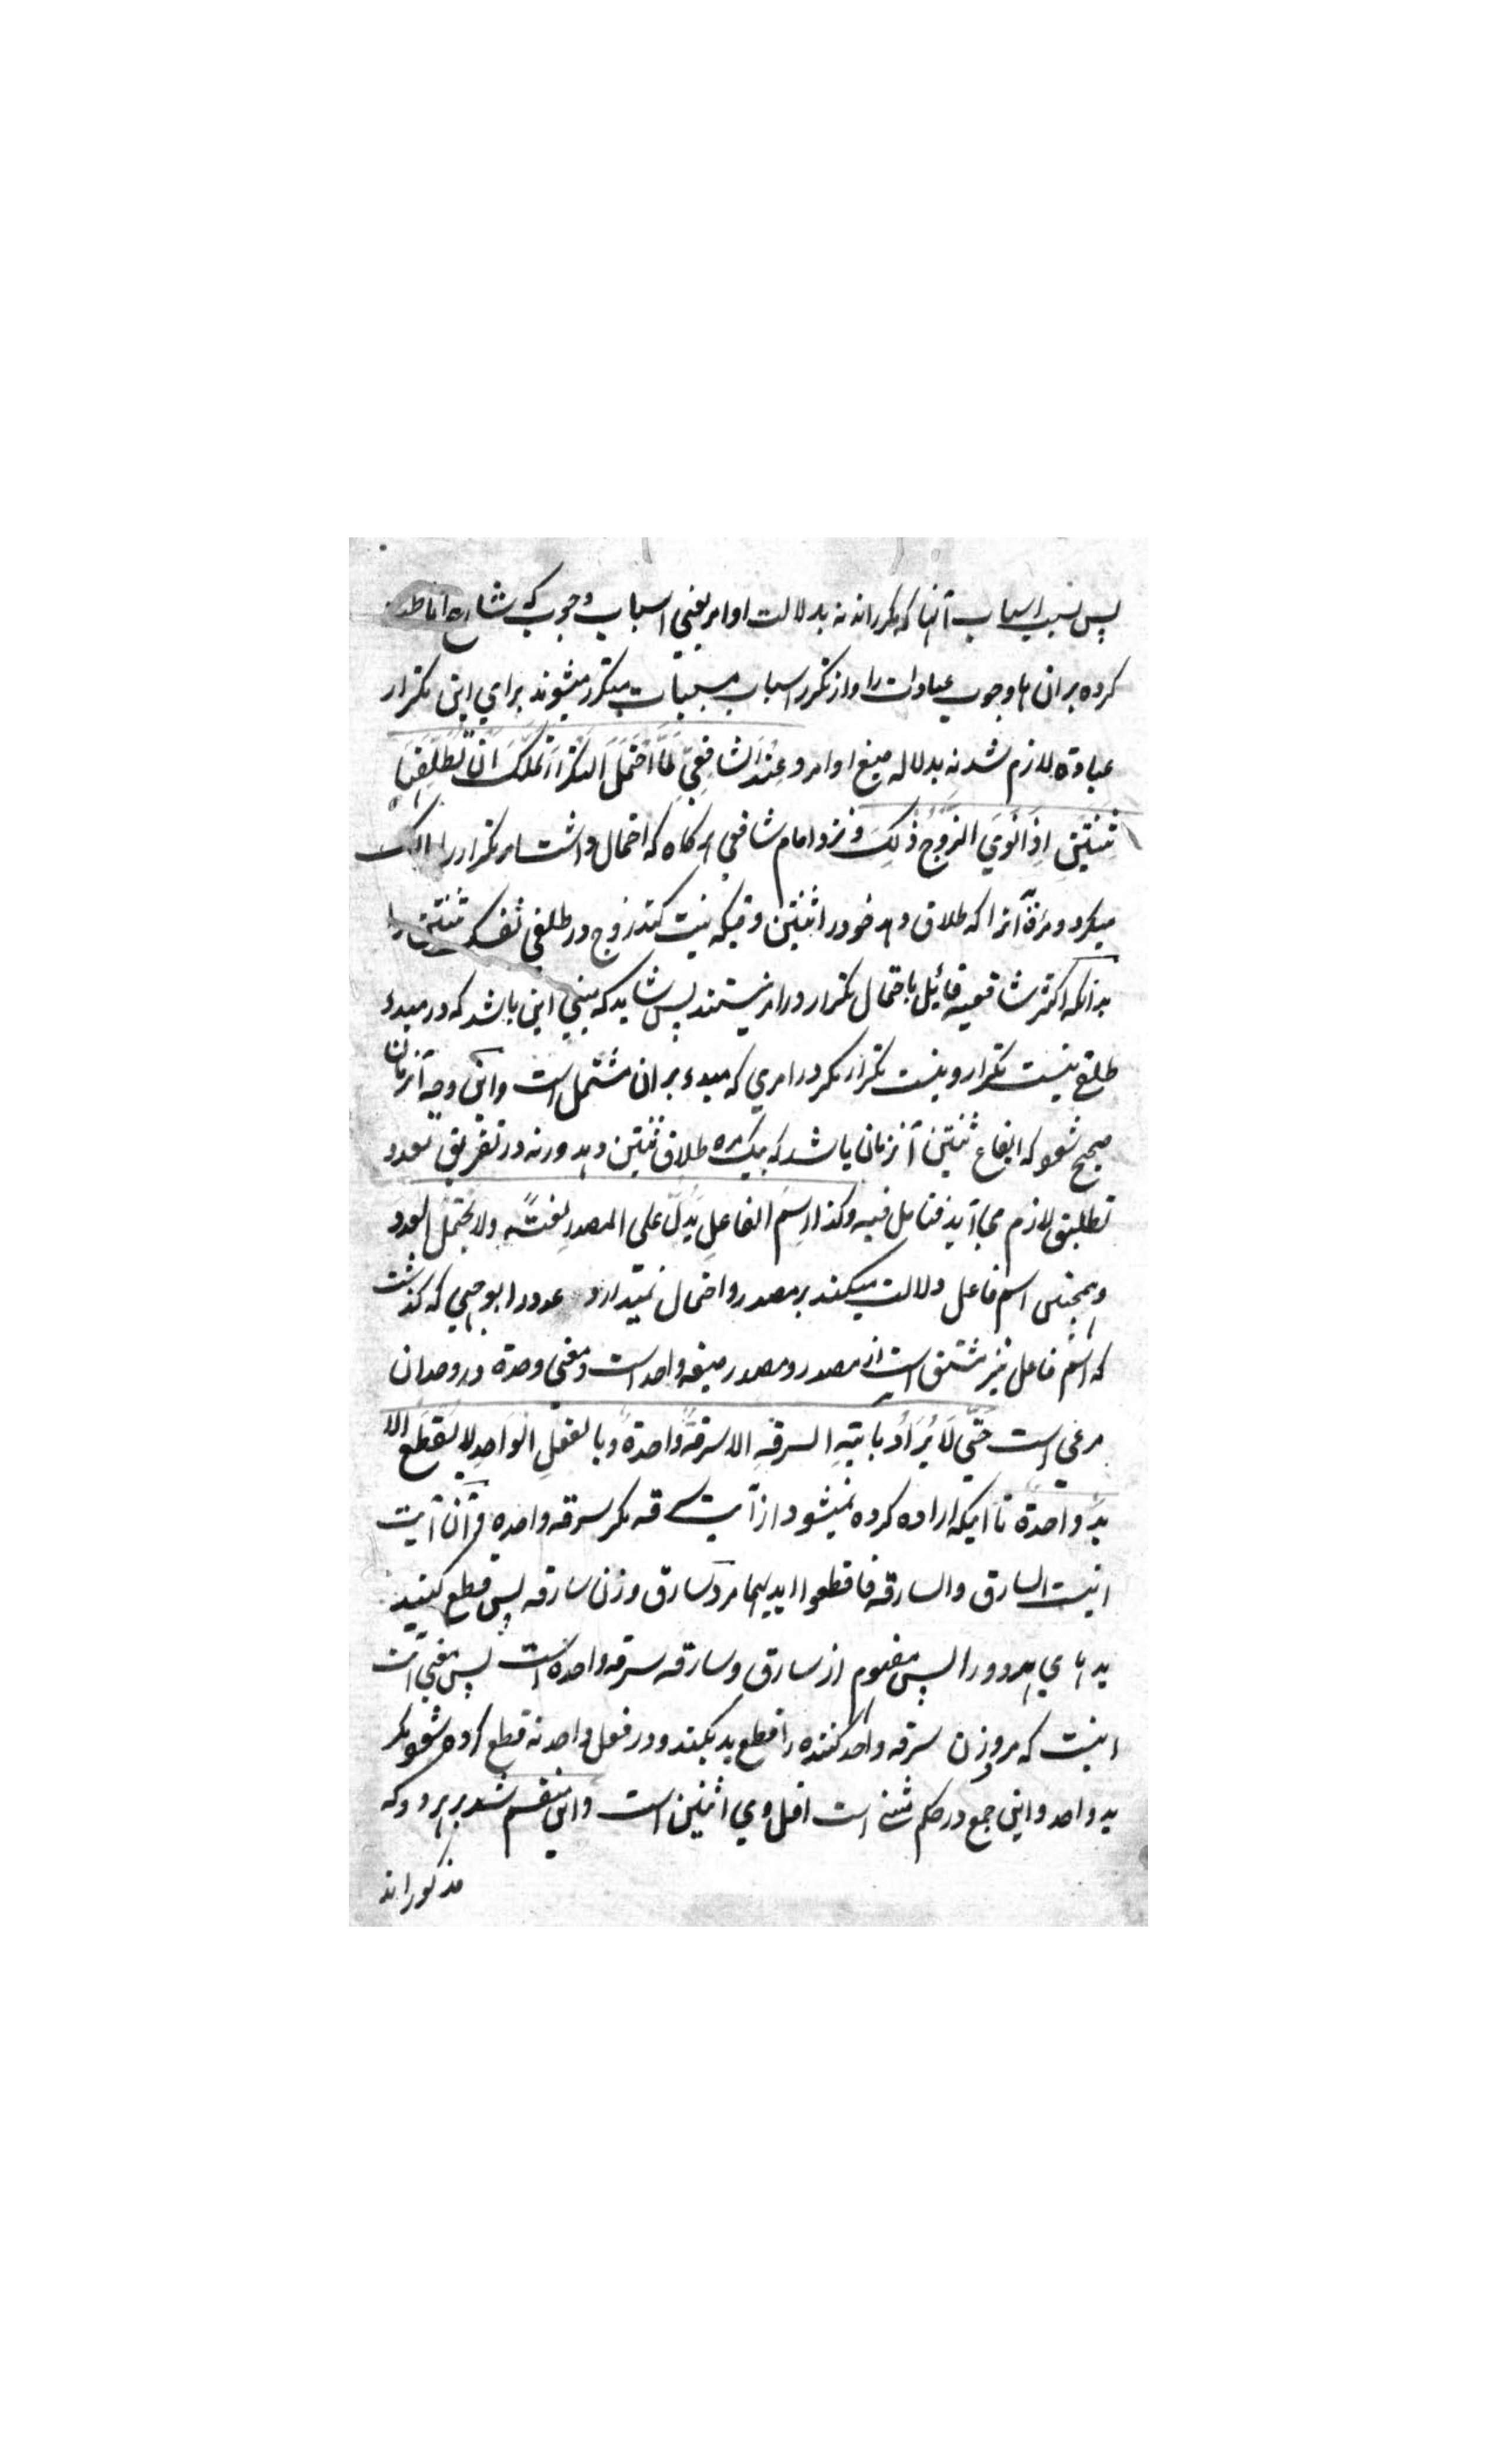 پس بسبب اسباب آنها که مکرراند نه بدلالت اوامر یعنی اسباب وجوب که شارع اناطه
کرده بر ان ها وجوب عبادات را و از تکرر اسباب مسببات متکرر میشوند برای این تکرار
عبادة لازم شد نه بدلاله صیغ اوامر و عِندَ الشافِعِيِّ لَمَّا احْتَمَلَ التکرارَ تَملِکُ اَن تُطَلِّقَ نفسَها
ثِنتَینِ اِذَا نَوَي الزَّوجُ ذٰلِکَ و نزد امام شافعی هر کاه که احتمال داشت امر تکرار را مالک
میکردد مرٔة آنرا که طلاق دهد خود را ثنتین وقتیکه نیت کند زوج در طلقی نفسک ثنتین را
بدانکه اکثر شافعیه قائل باحتمال تکرار در امر نیستند پس شاید که مبنی این باشد که در مبدء
طلق نیت تکرار و نیت تکرار نکرد در امری که مبدء بران مشتمل است و این وجه آنزمان
صحیح شود که ایقاع ثنتین آنزمان باشد که بیک مره طلاق ثنتین دهد ورنه در تفریق تعدد
تطلیق لازم می آید فتامل فیه وکذا اِسمُ الفاعِلِ یَدُلُّ علي المصدرِ لغتًه ولا یحتمل العدد
و همچنین اسم فاعل دلالت میکند بر مصدر و احتمال نمیدارد عدد را بوجهی که کذشت
که اسم فاعل نیز مشتق است از مصدر و مصدر صیغه واحد است و معنی وحدة در وحدان
مرعی است حَتّٰي لَا یُرَادُ بایَتِهِ السرقةِ الا سرقةً واحدةً و بالفعلِ الوَاحِدِ لا یُقطَعُ الا
یَدٌ واحدةٌ تا آنکه اراده کرده نمیشود از آیت سرقه مکر سرقه واحده و آن آیت
اینست السارق والسارقه فاقطعوا ایدیهما مرد سارق و زن سارقه پس قطع کنید
یدهای هر دو را پس مفهوم از سارق و سارقه سرقه واحده است پس معنی آیت
اینست که مرد و زن سرقه واحد کننده را قطع ید بکنند و در فعل واحد نه قطع کرده شود مکر
ید واحد و این جمع در حکم تثنیه است اقل وی اثنین است و این منقسم شد بر هر دو که
مذکور اند